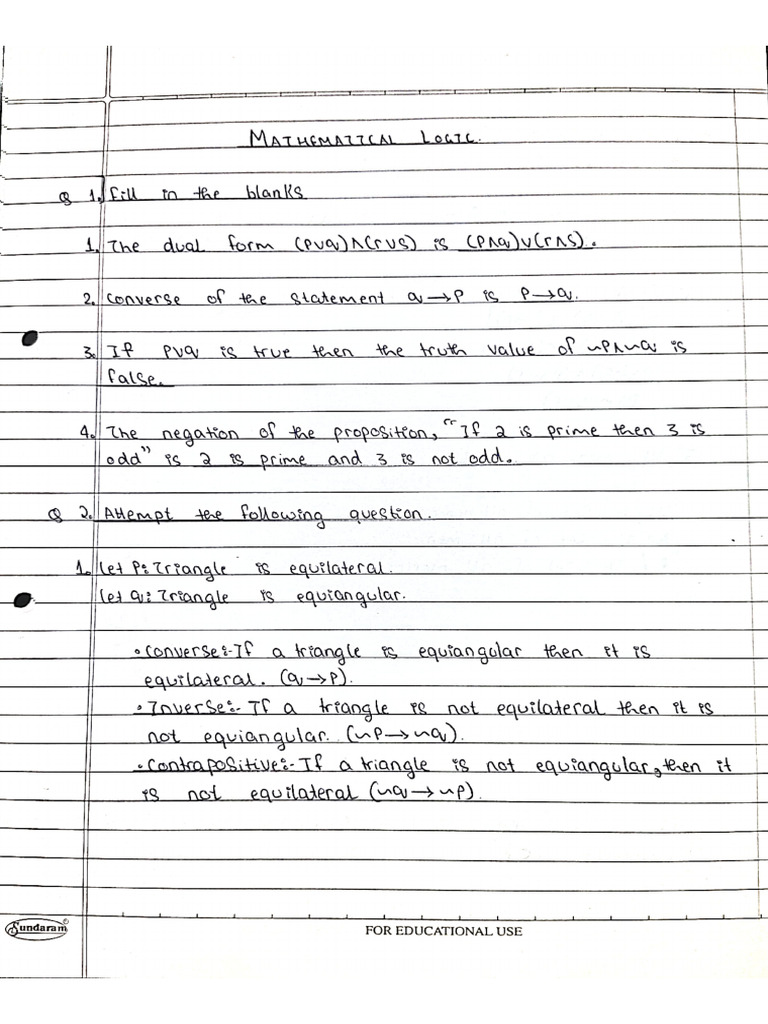 MATHEMATICAL LOGIC.
Q 1. Fill in the blanks
1. The dual form (p∨q)∧(r∨s) is (p∧q)∨(r∧s).
2. Converse of the statement q→p is p→q.
3. If p∨q is true then the truth value of ~p∧~q is
false.
4. The negation of the proposition, "If 2 is prime then 3 is
odd" is 2 is prime and 3 is not odd.
Q 2. Attempt the following question.
1. Let p: Triangle is equilateral.
Let q: Triangle is equiangular.
• Converse:- If a triangle is equiangular then it is
equilateral. (q→p).
• Inverse:- If a triangle is not equilateral then it is
not equiangular. (~p→~q).
• Contrapositive:- If a triangle is not equiangular, then it
is not equilateral (~q→~p).
Sundaram®
FOR EDUCATIONAL USE